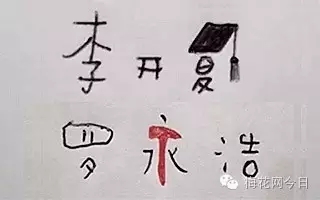 李开复
罗永浩
梅花网今日